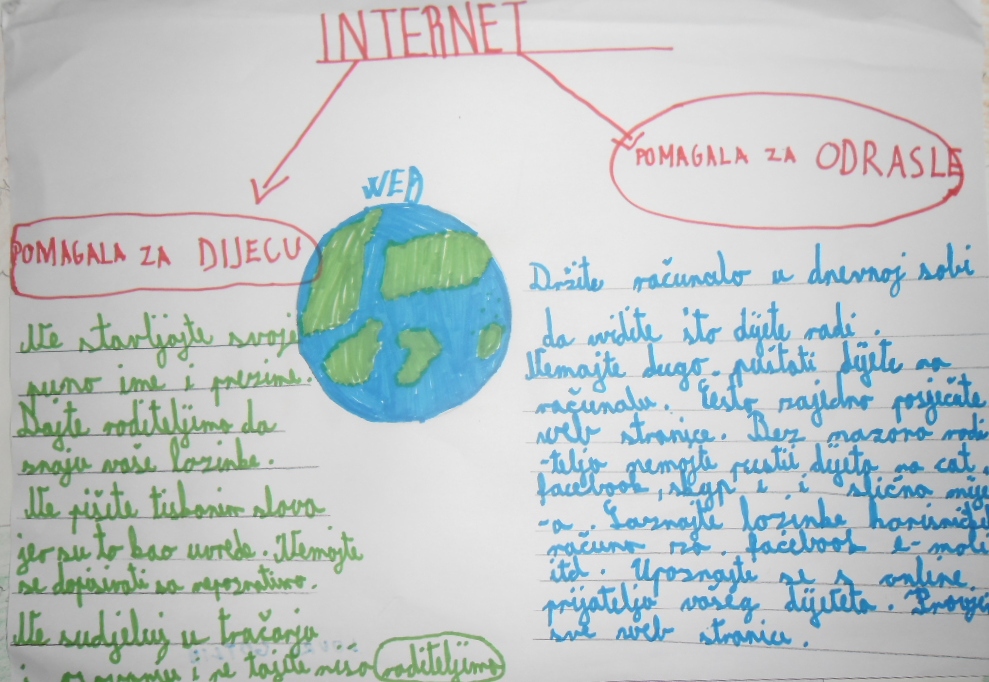 INTERNET
POMAGALA ZA ODRASLE
WEB
POMAGALA ZA DIJECU
Ne stavljajte svoje
puno ime i prezime.
Dajte roditeljima da
znaju vaše lozinke.
Ne pišite tiskanim slova
jer su to kao uvrede. Nemojte
se dopisivati sa nepoznatima.
Ne sudjeluj u tračanju
i ne tajite roditeljima
Držite računalo u dnevnoj sobi
da vidite što dijete radi.
Nemajte dugo. puštati dijete na
računalu. Često zajedno posjećite
web stranice. Bez nazora rodi
-telja nemojte pustii dijete na cat,
facebook, skyp i i slična mije
-a. Saznajte lozinke korisničkih
računa za. facebook e-mail
itd. Upoznajte se s online
prijatelja vašeg dijeteta.
sve web stranice.